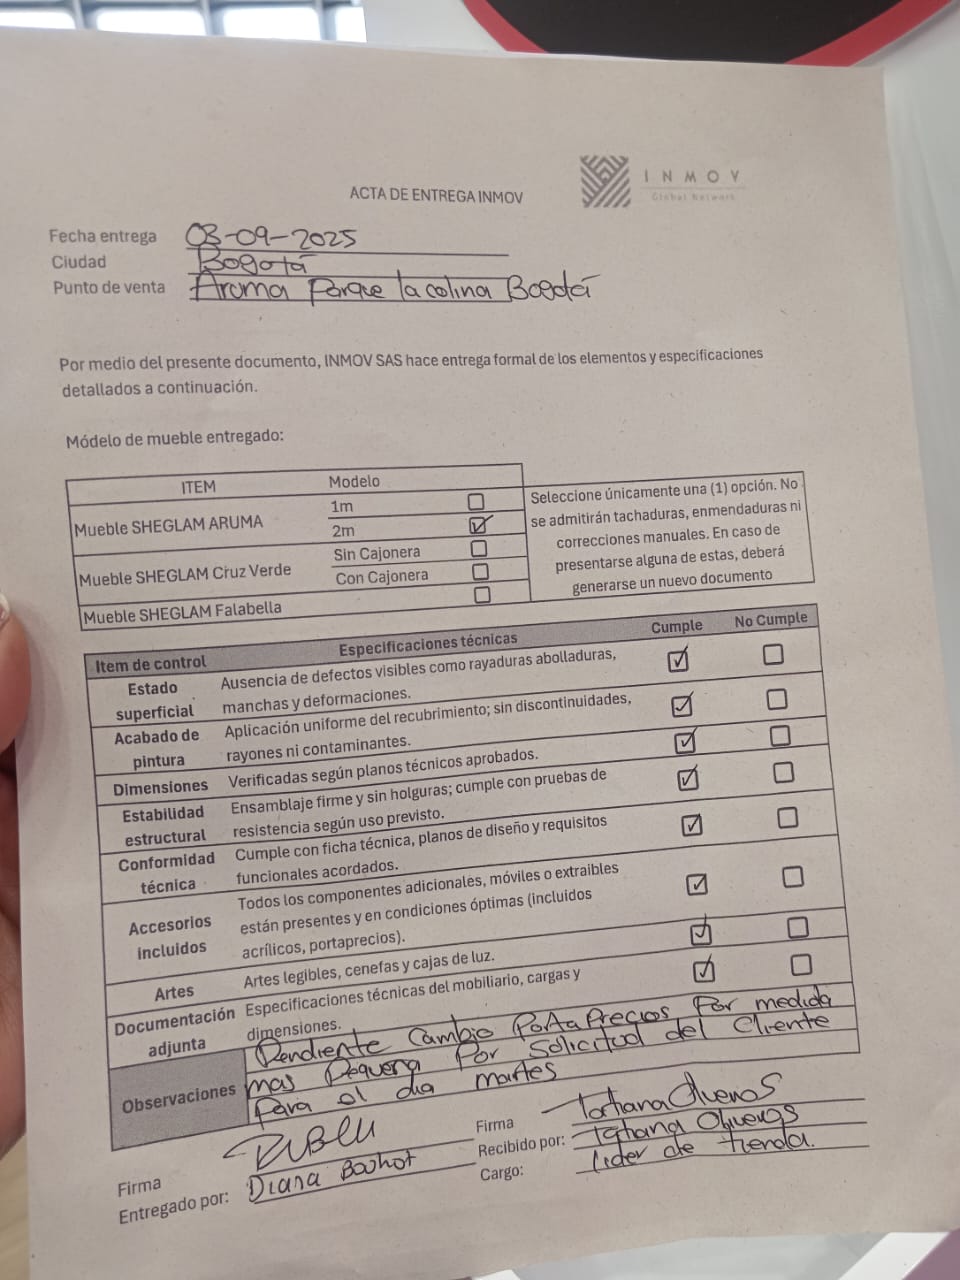 INMOV
Global Network
ACTA DE ENTREGA INMOV
Fecha entrega 03-09-2025
Ciudad Bogotá
Punto de venta Aroma Parque la colina Bogotá
Por medio del presente documento, INMOV SAS hace entrega formal de los elementos y especificaciones
detallados a continuación.
Módelo de mueble entregado:
ITEM Modelo
Mueble SHEGLAM ARUMA 1m
2m
Mueble SHEGLAM Cruz Verde Sin Cajonera
Con Cajonera
Mueble SHEGLAM Falabella
Seleccione únicamente una (1) opción. No
se admitirán tachaduras, enmendaduras ni
correcciones manuales. En caso de
presentarse alguna de estas, deberá
generarse un nuevo documento
Item de control Especificaciones técnicas Cumple No Cumple
Estado superficial Ausencia de defectos visibles como rayaduras abolladuras,
manchas y deformaciones.
Acabado de pintura Aplicación uniforme del recubrimiento; sin discontinuidades,
rayones ni contaminantes.
Dimensiones Verificadas según planos técnicos aprobados.
Estabilidad estructural Ensamblaje firme y sin holguras; cumple con pruebas de
resistencia según uso previsto.
Conformidad técnica Cumple con ficha técnica, planos de diseño y requisitos
funcionales acordados.
Accesorios incluidos Todos los componentes adicionales, móviles o extraibles
están presentes y en condiciones óptimas (incluidos
acrílicos, portaprecios).
Artes Artes legibles, cenefas y cajas de luz.
Documentación adjunta Especificaciones técnicas del mobiliario, cargas y
dimensiones.
Observaciones Pendiente Cambio PortaPrecios Por medida
mas Pequeña Por Solicitud del Cliente
Para el dia martes
Firma
Entregado por: Diana
Firma Tatiana Oliveros
Recibido por: Tatiana Oliveros
Cargo: lider de tienda.